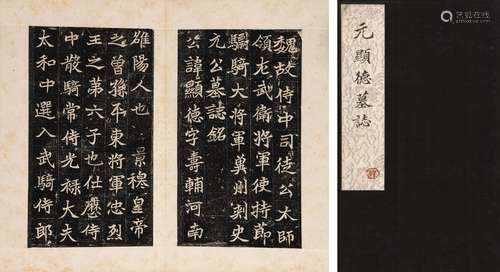 元顯德墓誌
魏故侍中司徒公太師
領左武衛將軍使持節
驃騎大將軍冀州刺史
元公墓誌銘
公諱顯德字壽輔河南
雒陽人也 景穆皇帝
之曾孫平東將軍忠烈
王之第六子也仕歷侍
中散騎常侍光祿大夫
太和中選入武騎侍郎